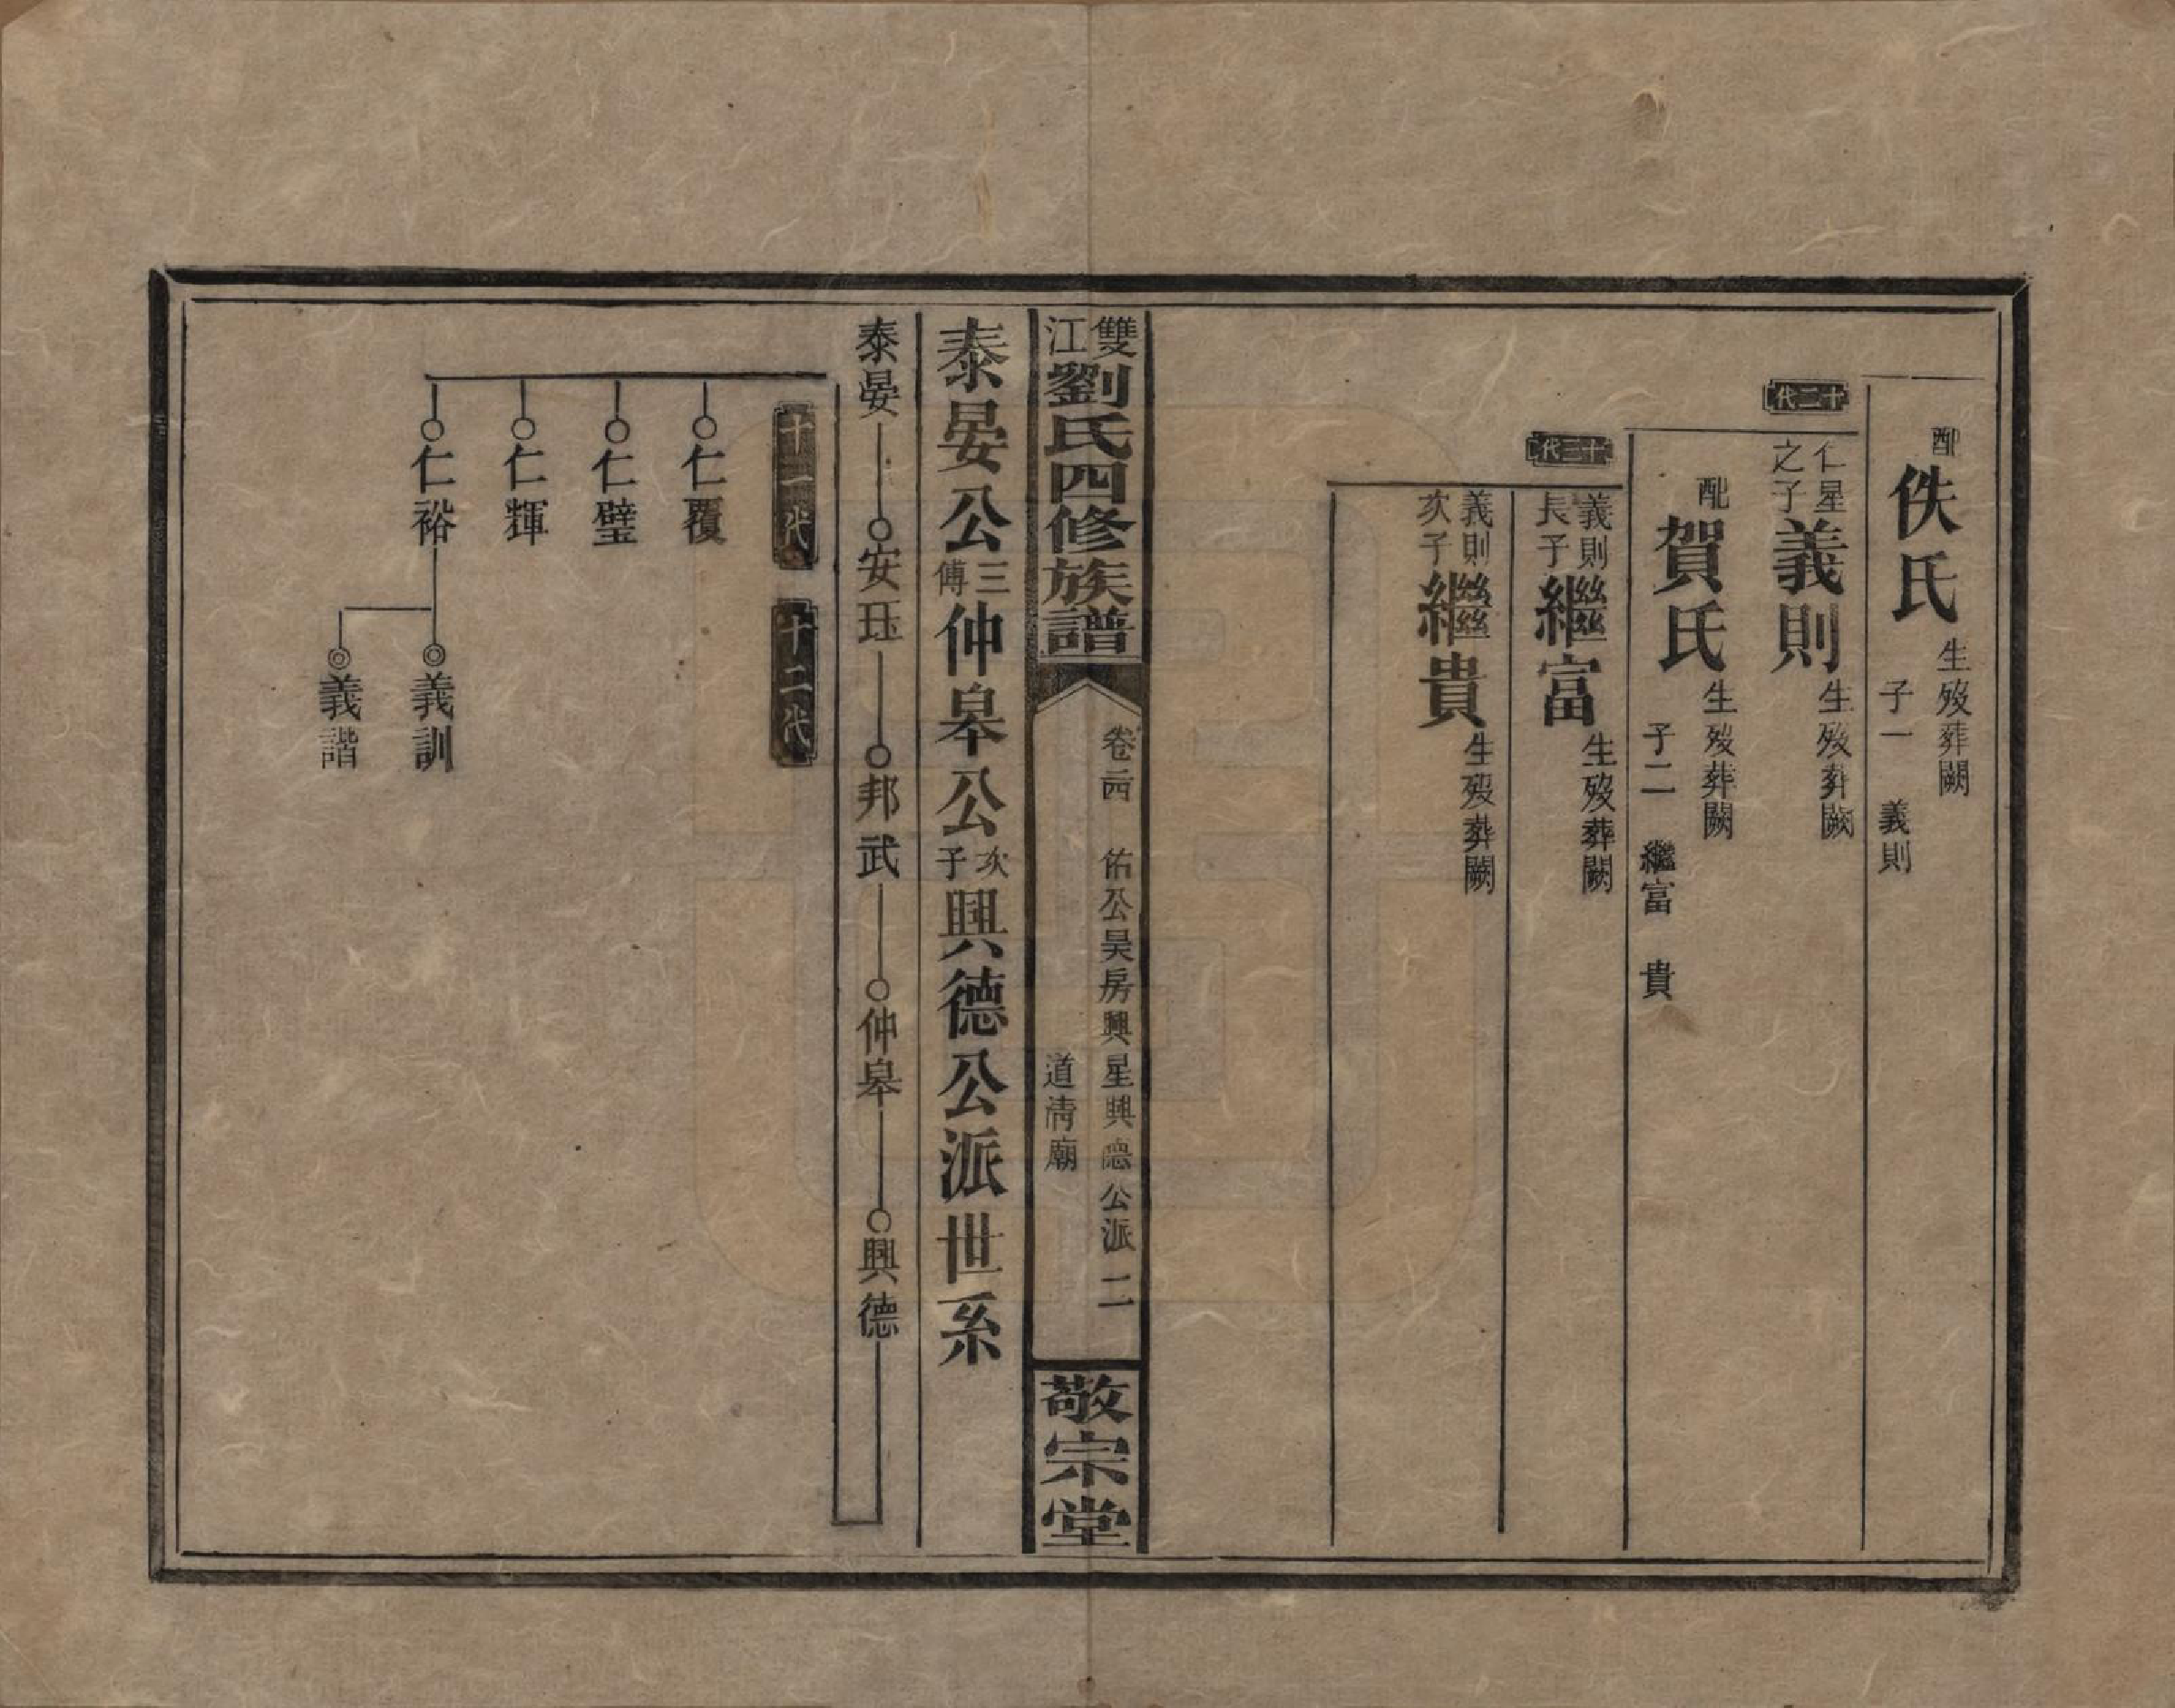 配佚氏生歿葬闕
子一 義則
十二代
仁星之子義則生歿葬闕
配賀氏生歿葬闕
子二 繼富 貴
十三代
義則長子繼富生歿葬闕
義則次子繼貴生歿葬闕
雙江劉氏四修族譜
卷二四 佑公昊房興星興德公派 二
道清廟
敬宗堂
泰晏公三傳仲皋公次子興德公派世系
泰晏 安玨 邦武 仲皋 興德
十一代 十二代
仁覆
仁璧
仁輝
仁裕 義訓
義諧